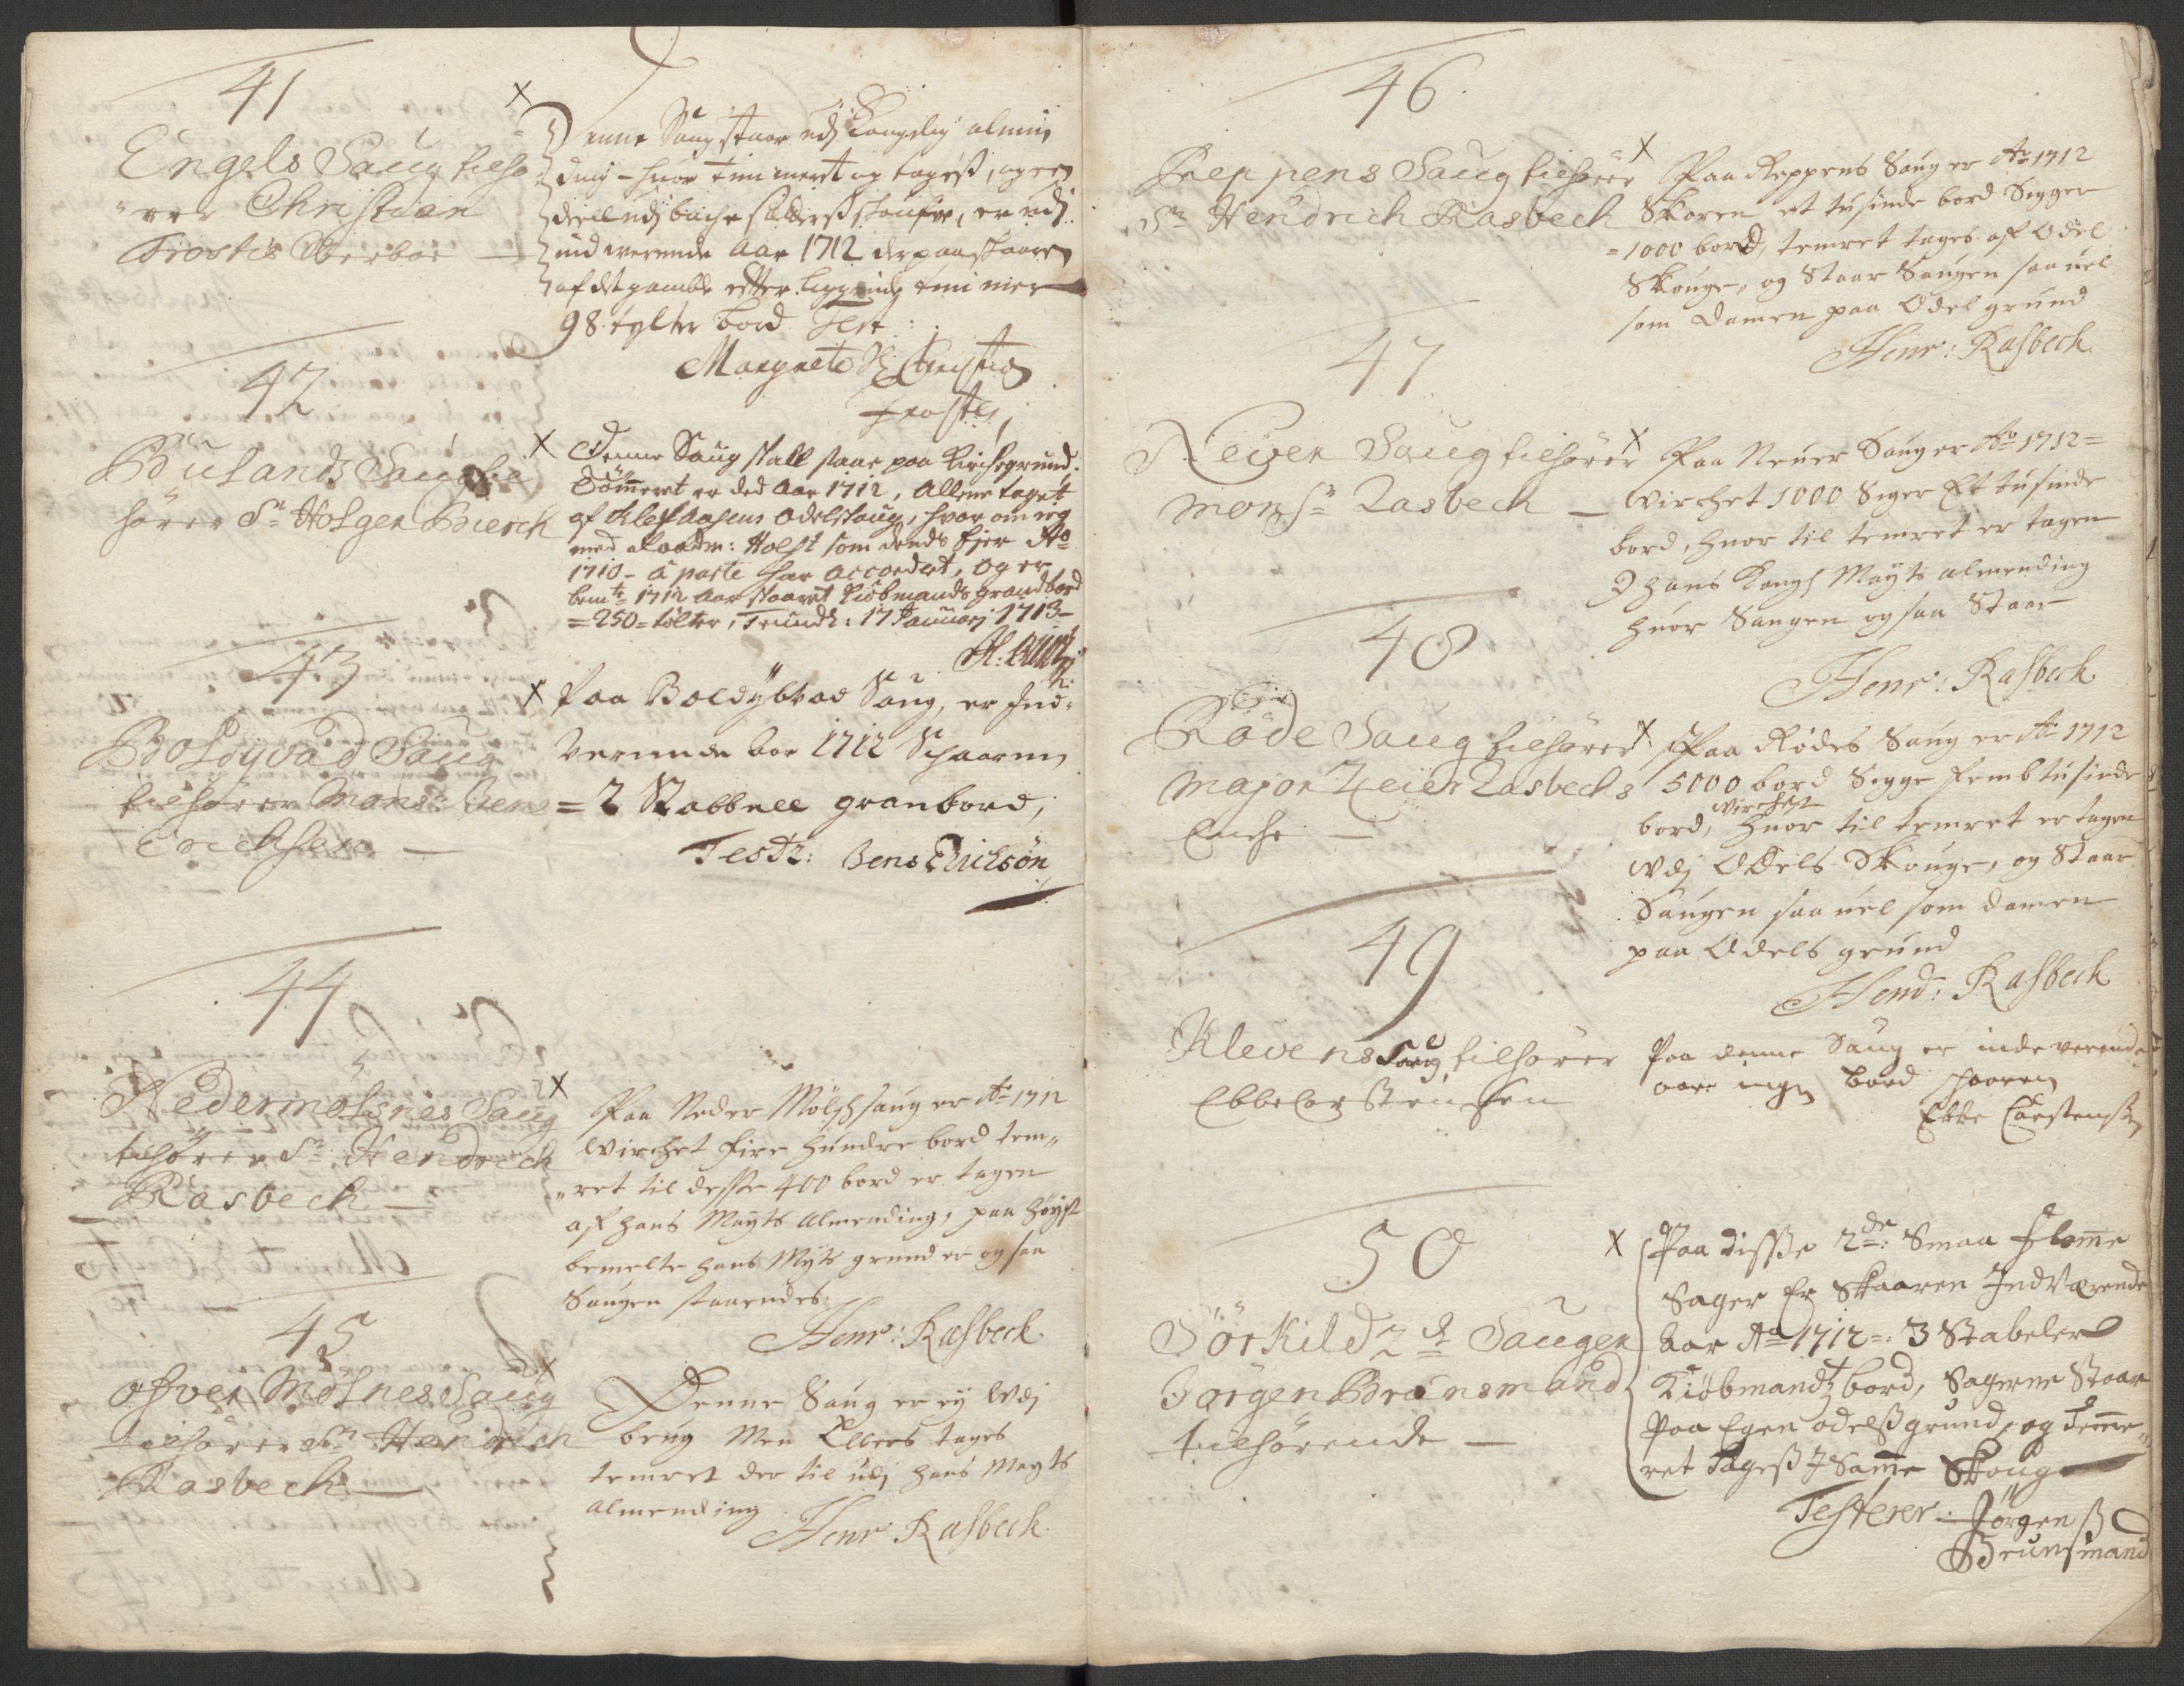 41
Engels Saug tilhø-
rer Christian
Frostis Arfver
x
Denne Saug staar udj Kongelig almin
ding - huor timmeret og tagess, og een
deell udj bache sætterss skoufve, er udj
ind werende Aar 1712 derpaa skaaren
af det gamble efter liggende timmer
98 tylter bord Test:
Margrete Sl Christian
Frostis
42
Bulands Saug til
hører Sr Holger Bierch
x
Denne Saug skall staae paa Kirchegrund.
Tömmeret er ded Aar 1712, Allene taget
af Klefaasens odelskoug, hvor om ieg
med Raadm: Holst som dends Ejer Ao
1710 - à parte har accorderet, og er
bemte 1712 Aar skaaret Kiöbmands granbord
=250= tölter, Trundh: 17 Januarj 1713
43
Boldyvad Saug
tilhører Mons: Jens
Erichsen
x
Paa Boldÿbvad Saug, er Ind-
verende aar 1712 Schaaren
= 2 Stabbell granbord,
Test: Jens Erichsön
44
Nedermölsnes Saug
tilhører Sr Hendrich
Rasbech
x
Paa Neder Mölssaug er Ao 1712
wirchet fire hundre bord tem-
ret til desse 400 bord er tagen
af hans Mayts Almending, paa höyst
bemelte hans Mayts grund er og saa
Saugen staaendes
Henr: Rasbech
45
Ofver Mölnes Saug
tilhører Sr Hendrich
Rasbech
x
Denne Saug er ey Udj
brug Men Ellers tages
temret der til udj hans Mayts
Almending
Henr Rasbech
46
Reppens Saug tilhører
Sr Hendrich Rasbech
x
Paa Reppens Saug er Ao 1712
Skoren et tusinde bord Sigger
=1000 bord, temret tages af Odel
Skouge, og Staar Saugen saauel
som Damen paa Odel grund
Henr: Rasbech
47
Never Saug tilhører
Monsr Rasbech
x
Paa Neuer Saug er Ao 1712=
wirchet 1000 Siger Et tusinde
bord, huor til temret er tagen
J hans Kongl Mayts almending
huor Saugen ogsaa Staar
Henr: Rasbech
48
Röde Saug tilhører
Major Zeier Rasbechs
Enche
x
Paa Rödes Saug er Ao 1712
5000 bord Sigge femb tusinde
bord, wirchet huor til temret er tagen
Udj Odels Skouge, og Staar
Saugen saauel som Damen
paa Odels grund
Hend: Rasbech
49
Klevens Saug tilhører
Ebbe Carstensen
Paa denne Saug er inde verende
aar ingen bord schaaren
Ebbe Carstensen
50
Törkild 2de Sauger
Jørgen Brunsmand
tilhørende
x
Paa disse 2de: Smaa Flomme
Sager Er Skaaren Indværende
Aar Ao 1712=: 3 Stabeler
Kiöbmandtz bord, Sagerne Staar
Paa Egen odelss grund, og Temme-
ret Tages J Samme Skoug
Testerer: Jörgen
Brunsmand